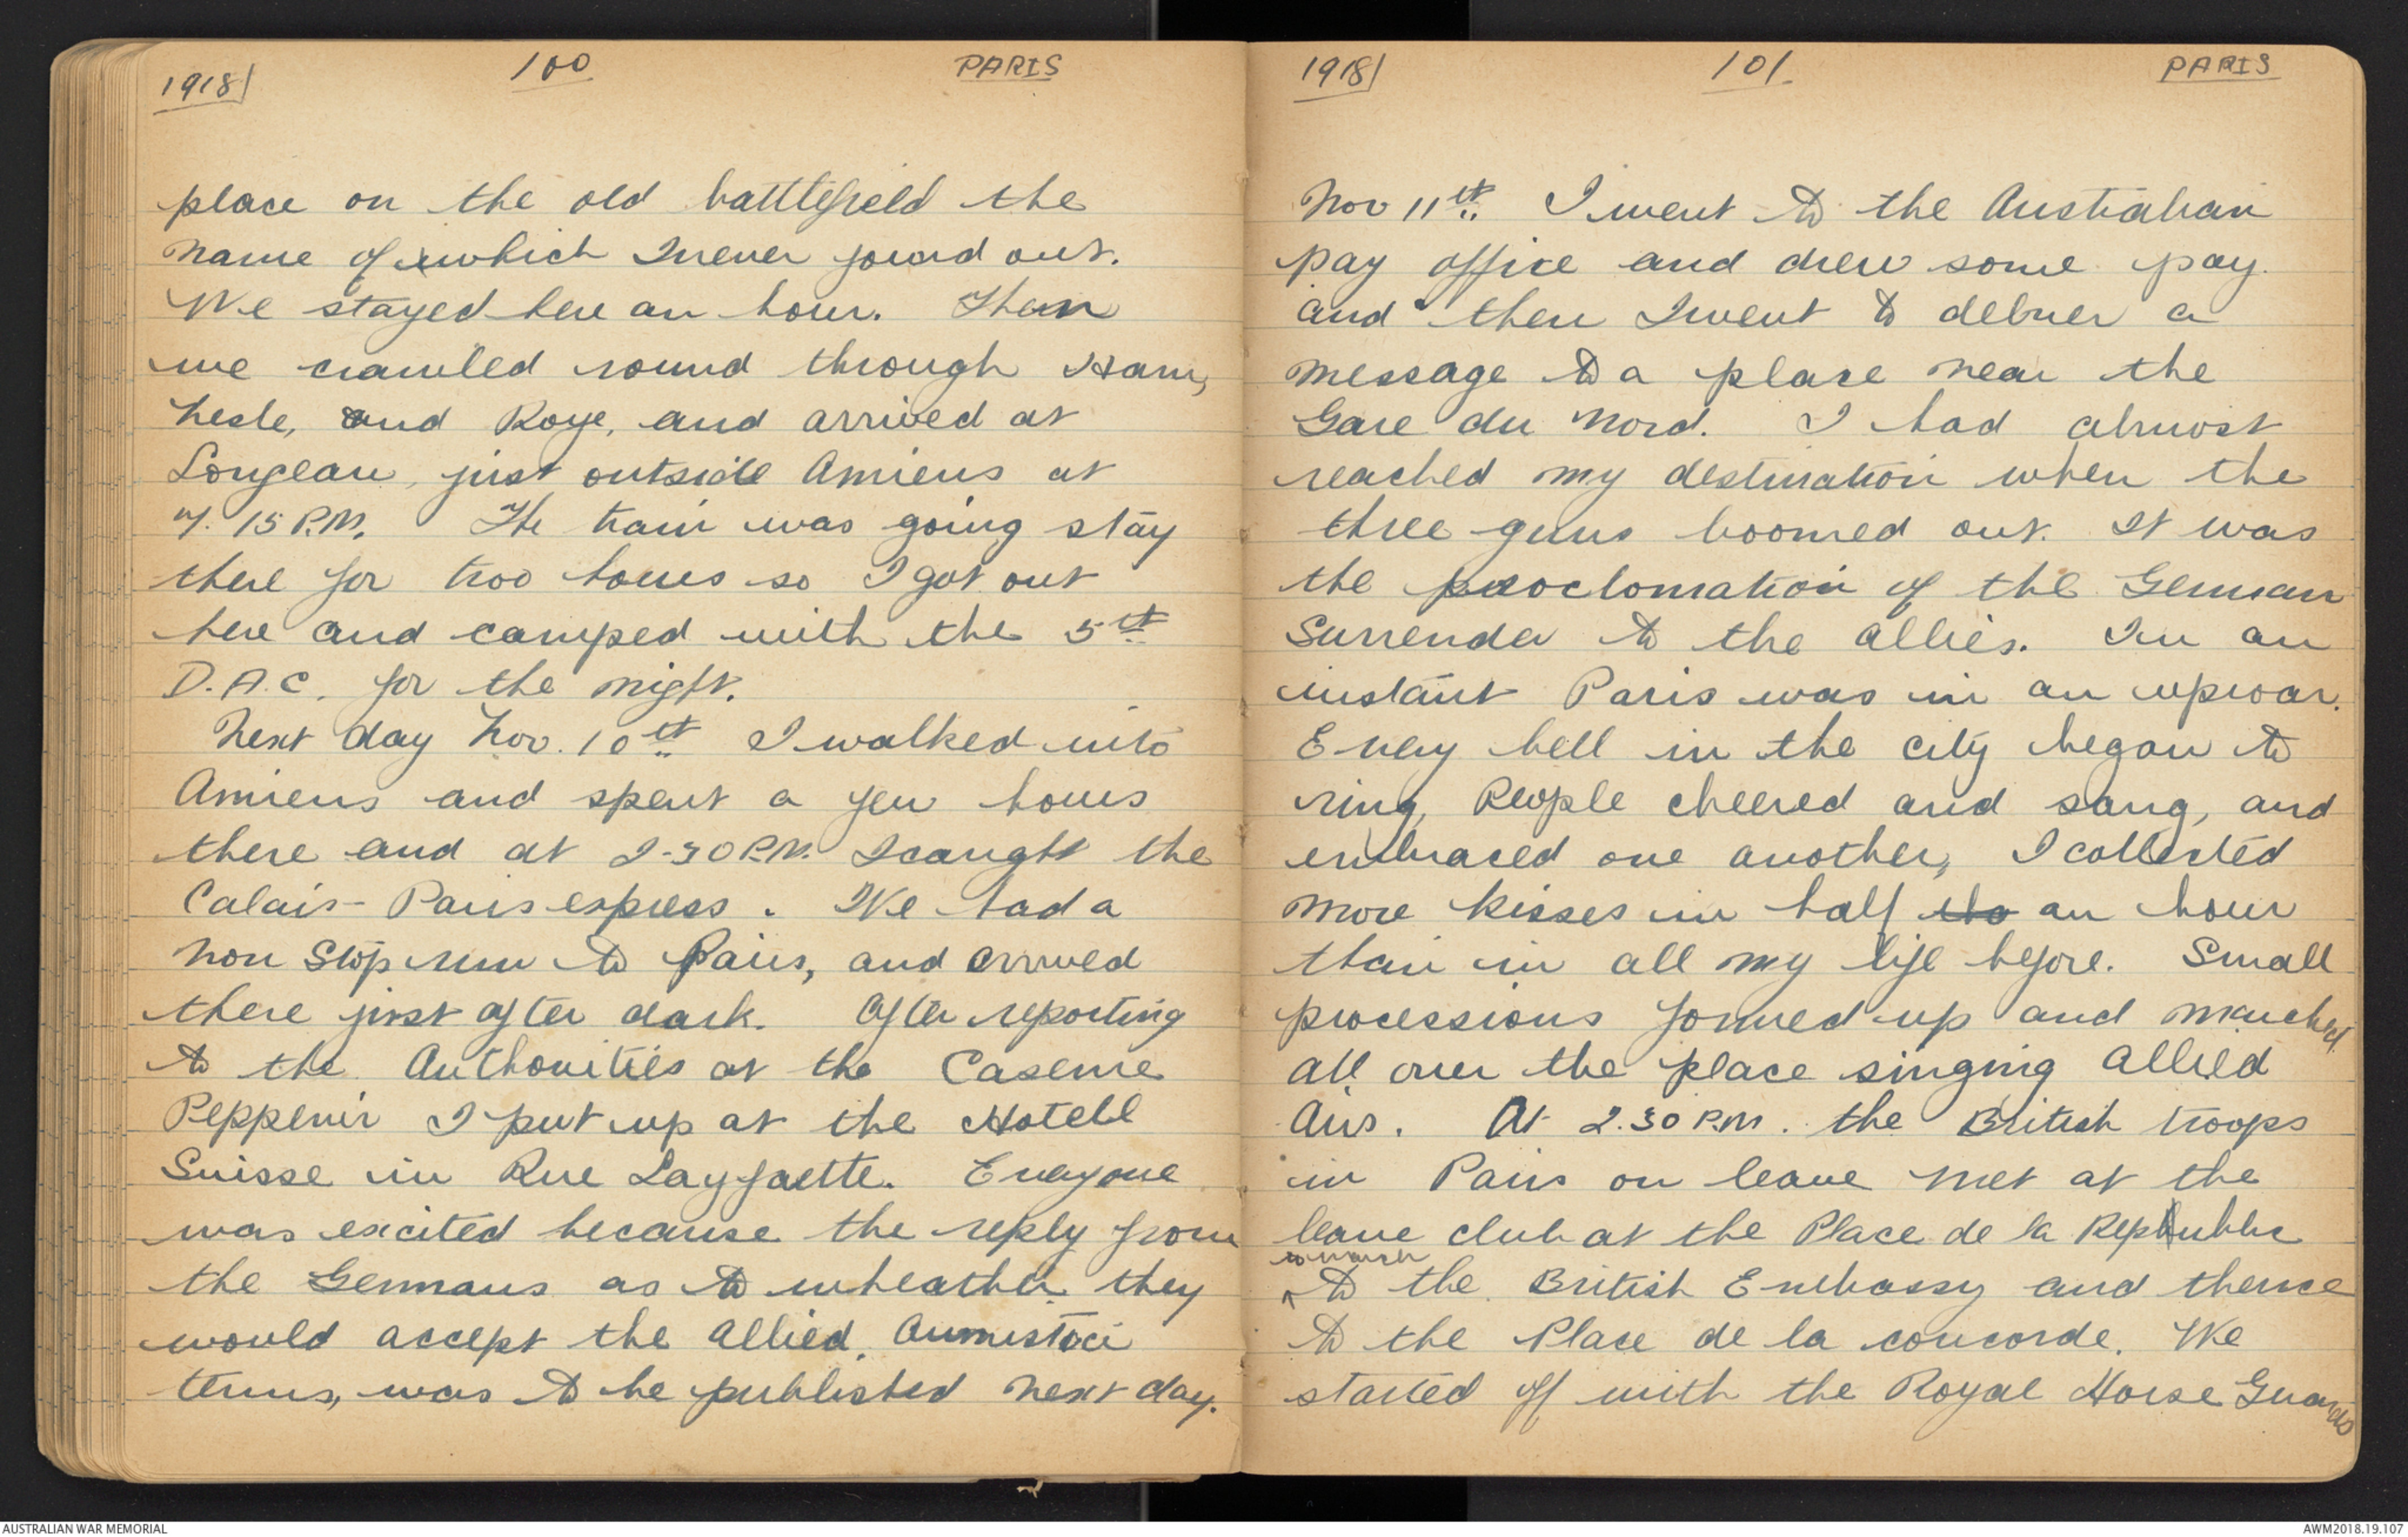 1918/ 100 PARIS
place on the old battlefield the
name of which I never found out.
We stayed here an hour. Then
we crawled round through Ham,
Nesle, and Roye, and arrived at
Longeau, just outside Amiens at
7.15 P.M. The train was going stay
there for two hours so I got out
here and camped with the 5th
D.A.C. for the night.
Next day Nov. 10th I walked into
Amiens and spent a few hours
there and at 2-30 P.M. I caught the
Calais-Paris express. We had a
non stop run to Paris, and arrived
there just after dark. After reporting
to the Authorities at the Caserne
Peppenir I put up at the Hotell
Suisse in Rue Layfaette. Everyone
was excited because the reply from
the Germans as to wheather they
would accept the Allied, Aumistoci
terms, was to be published next day.
1918/ 101. PARIS
Nov 11th. I went to the Australian
pay office and drew some pay.
and then I went to deliver a
message to a place near the
Gare du Nord. I had almost
reached my destination when the
three guns boomed out. It was
the proclomation of the German
Surrender to the Allies. In an
instant Paris was in an uproar.
Every bell in the city began to
ring, People cheered and sang, and
embraced one another, I collected
more kisses in half an hour
than in all my life before. Small
processions formed up and marched
all over the place singing Allied
Airs. At 2.30 P.M. the British troops
in Paris on leave met at the
leave club at the Place de la Republic
to march
to the British Embassy and thence
to the Place de la concorde. We
started off with the Royal Horse Guards
AUSTRALIAN WAR MEMORIAL
AWM2018.19.107